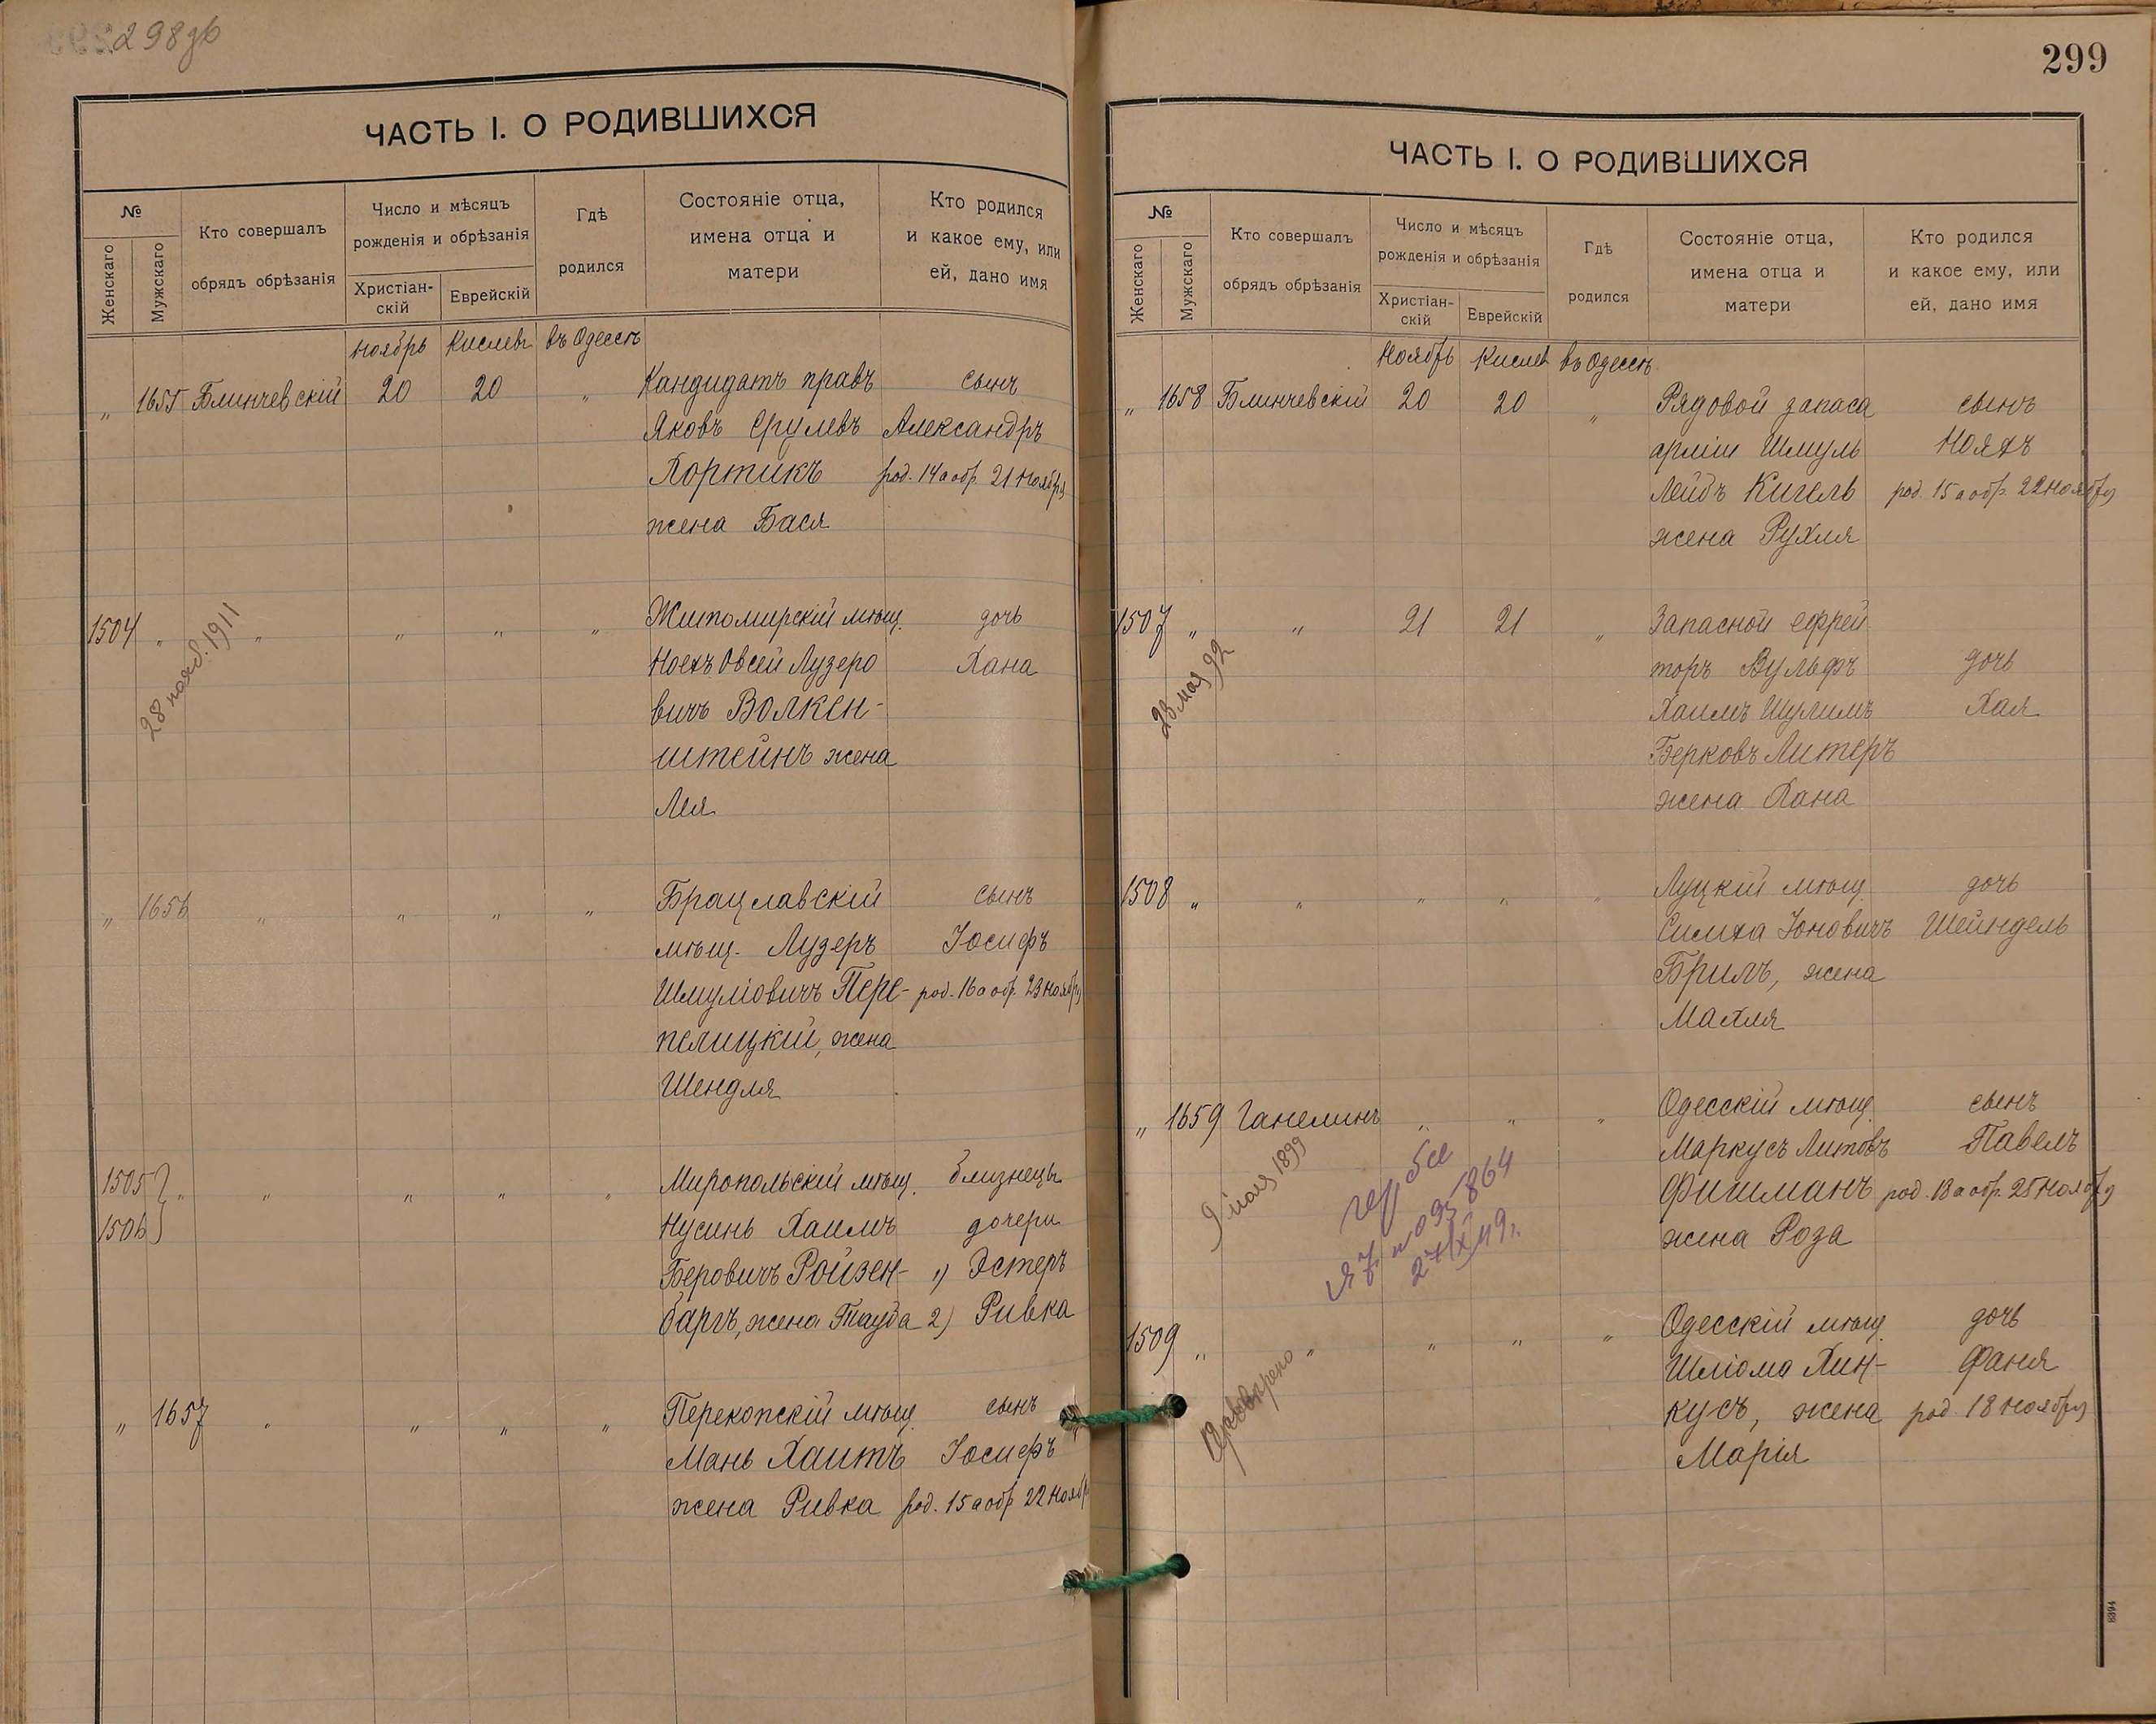 298 зв
ЧАСТЬ I. О РОДИВШИХСЯ
№
Женскаго
Мужскаго
Кто совершалъ
обрядъ обрѣзанія
Число и мѣсяцъ
рожденія и обрѣзанія
Христіан-
скій
Еврейскій
Гдѣ
родился
Состояніе отца,
имена отца и
матери
Кто родился
и какое ему, или
ей, дано имя
Ноябрь Кислевъ въ Одессѣ
„ 1655 Блинчевскій 20 20 „ Кандидатъ правъ сынъ
Яковъ Срулевъ Александръ
Хортикъ род. 14 а обр. 21 Ноября
жена Бася
1504 „ „ „ „ „ Житомирскій мѣщ. дочь
28 нояб. 1911
Ноехъ Овсей Лузеро Хана
вичъ Волкен-
штейнъ жена
Лея
„ 1656 „ „ „ „ Брацлавскій сынъ
мѣщ. Лузеръ Іосифъ
Шмуліовичъ Пере- род. 16 а обр. 23 Ноября
пелицкій, жена
Шендля
1505 „ „ „ „ „ Миропольскій мѣщ. близнецы
1506 Нусинь Хаимъ дочери
Беровичъ Ройзен- 1) Эстеръ
баргъ, жена Тауба 2) Ривка
„ 1657 „ „ „ „ Перекопскій мѣщ. сынъ
Мань Хаитъ Іосифъ
жена Ривка род. 15 а обр. 22 Нояб
299
ЧАСТЬ I. О РОДИВШИХСЯ
№
Женскаго
Мужскаго
Кто совершалъ
обрядъ обрѣзанія
Число и мѣсяцъ
рожденія и обрѣзанія
Христіан-
скій
Еврейскій
Гдѣ
родился
Состояніе отца,
имена отца и
матери
Кто родился
и какое ему, или
ей, дано имя
Ноябрь Кислев въ Одессѣ
„ 1658 Блинчевскій 20 20 „ Рядовой запаса сынъ
арміи Шмуль Нояхъ
Лейбъ Кигель род. 15 а обр. 22 Ноября
жена Рухля
1507 „ „ 21 21 „ Запасной ефрей
28 мая 92
торъ Вульфъ дочь
Хаимъ Шулимъ Хая
Берковъ Литеръ
жена Хана
1508 „ „ „ „ „ Луцкій мѣщ. дочь
Симха Іоновичъ Шейндель
Брилъ, жена
Махля
„ 1659 Ганелинъ „ „ „ Одесскій мѣщ. сынъ
9 іюля 1899
Маркусъ Литовъ Павелъ
Фишманъ род. 18 а обр. 25 Ноября
жена Роза
864
1509 „ „ „ „ „ Одесскій мѣщ. дочь
Шліома Хин- Фаня
кусъ, жена род. 18 Ноября
Марія
8394